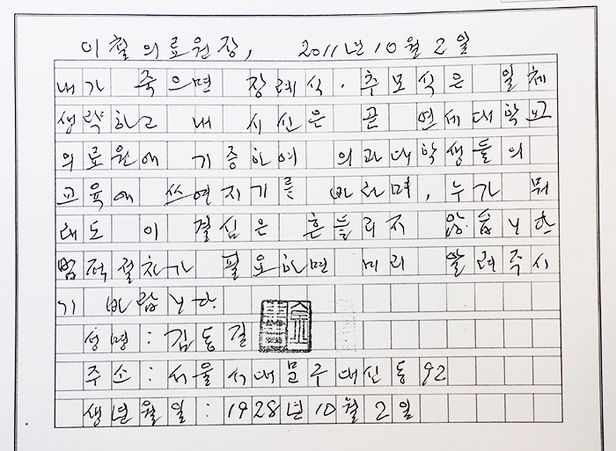 이철의료원장, 2011년 10월 2일
내가 죽으면 장례식·추모식은 일체
생략하고 내 시신은 곧 연세대학교
의료원에 기증하여 의과대학생들의
교육에 쓰여지기를 바라며, 누가 뭐
래도 이 결심은 흔들리지 않습니다
법적절차가 필요하면 미리 알려주시
기 바랍니다.
성명 : 김동길
주소 : 서울 서대문구 대신동 92
생년월일 : 1928년 10월 2일